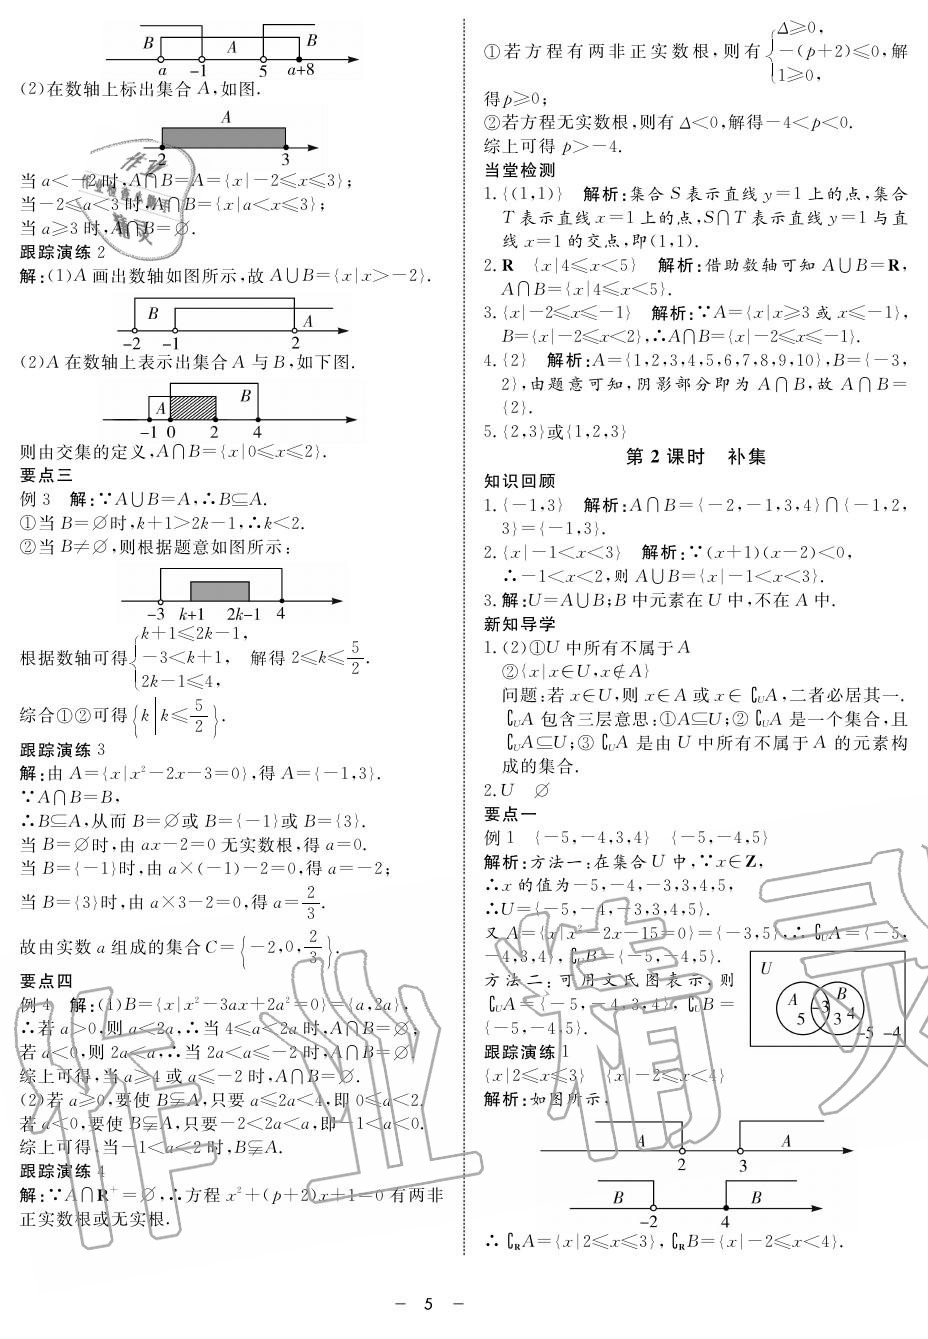 B A B
a -1 5 a+8
(2)在数轴上标出集合 A,如图.
A
-2 3
当 a<-2时,A∩B=A={x|-2≤x≤3};
当-2≤a<3时,A∩B={x|a<x≤3};
当 a≥3 时,A∩B=∅.
跟踪演练 2
解:(1)A 画出数轴如图所示,故 A∪B={x|x>-2}.
B A
-2 -1 2
(2)A 在数轴上表示出集合 A 与 B,如下图.
A B
-1 0 2 4
则由交集的定义,A∩B={x|0≤x≤2}.
要点三
例 3 解:∵A∪B=A,∴B⊆A.
①当 B=∅时,k+1>2k-1,∴k<2.
②当 B≠∅,则根据题意如图所示:
-3 k+1 2k-1 4
根据数轴可得{k+1≤2k-1, -3<k+1, 2k-1≤4, 解得 2≤k≤5/2.
综合①②可得{k|k≤5/2}.
跟踪演练 3
解:由 A={x|x²-2x-3=0},得 A={-1,3}.
∵A∩B=B,
∴B⊆A,从而 B=∅或 B={-1}或 B={3}.
当 B=∅时,由 ax-2=0 无实数根,得 a=0.
当 B={-1}时,由 a×(-1)-2=0,得 a=-2;
当 B={3}时,由 a×3-2=0,得 a=2/3.
故由实数 a 组成的集合 C={-2,0,2/3}.
要点四
例 4 解:(1)B={x|x²-3ax+2a²=0}={a,2a},
∴若 a>0,则 a<2a,∴当 4≤a<2a 时,A∩B=∅,
若 a<0,则 2a<a,∴当 2a<a≤-2 时,A∩B=∅,
综上可得,当 a≥4 或 a≤-2 时,A∩B=∅.
(2)若 a≥0,要使 B⫋A,只要 a≤2a<4,即 0≤a<2.
若 a<0,要使 B⫋A,只要-2<2a<a,即-1<a<0.
综上可得,当-1<a<2 时,B⫋A.
跟踪演练 4
解:∵A∩R⁺=∅,∴方程 x²+(p+2)x+1=0 有两非
正实数根或无实根.
①若方程有两非正实数根,则有{Δ≥0, -(p+2)≤0, 1≥0, 解
得 p≥0;
②若方程无实数根,则有 Δ<0,解得-4<p<0.
综上可得 p>-4.
当堂检测
1.{(1,1)} 解析:集合 S 表示直线 y=1 上的点,集合
T 表示直线 x=1 上的点,S∩T 表示直线 y=1 与直
线 x=1 的交点,即(1,1).
2.R {x|4≤x<5} 解析:借助数轴可知 A∪B=R,
A∩B={x|4≤x<5}.
3.{x|-2≤x≤-1} 解析:∵A={x|x≥3 或 x≤-1},
B={x|-2≤x<2},∴A∩B={x|-2≤x≤-1}.
4.{2} 解析:A={1,2,3,4,5,6,7,8,9,10},B={-3,
2},由题意可知,阴影部分即为 A∩B,故 A∩B=
{2}.
5.{2,3}或{1,2,3}
第 2 课时 补集
知识回顾
1.{-1,3} 解析:A∩B={-2,-1,3,4}∩{-1,2,
3}={-1,3}.
2.{x|-1<x<3} 解析:∵(x+1)(x-2)<0,
∴-1<x<2,则 A∪B={x|-1<x<3}.
3.解:U=A∪B;B 中元素在 U 中,不在 A 中.
新知导学
1.(2)①U 中所有不属于A
②{x|x∈U,x∉A}
问题:若 x∈U,则 x∈A 或 x∈∁UA,二者必居其一.
∁UA 包含三层意思:①A⊆U;②∁UA 是一个集合,且
∁UA⊆U;③∁UA 是由 U 中所有不属于 A 的元素构
成的集合.
2.U ∅
要点一
例 1 {-5,-4,3,4} {-5,-4,5}
解析:方法一:在集合 U 中,∵x∈Z,
∴x 的值为-5,-4,-3,3,4,5,
∴U={-5,-4,-3,3,4,5}.
又 A={x|x²-2x-15=0}={-3,5},∴∁UA={-5,
-4,3,4},∁UB={-5,-4,5}.
方法二:可用文氏图表示,则
∁UA={-5,-4,3,4},∁UB=
{-5,-4,5}.
U
A B
5 -3 3 4
-5 -4
跟踪演练 1
{x|2≤x≤3} {x|-2≤x<4}
解析:如图所示,
A A
2 3
B B
-2 4
∴∁RA={x|2≤x≤3},∁RB={x|-2≤x<4}.
— 5 —
作业精灵